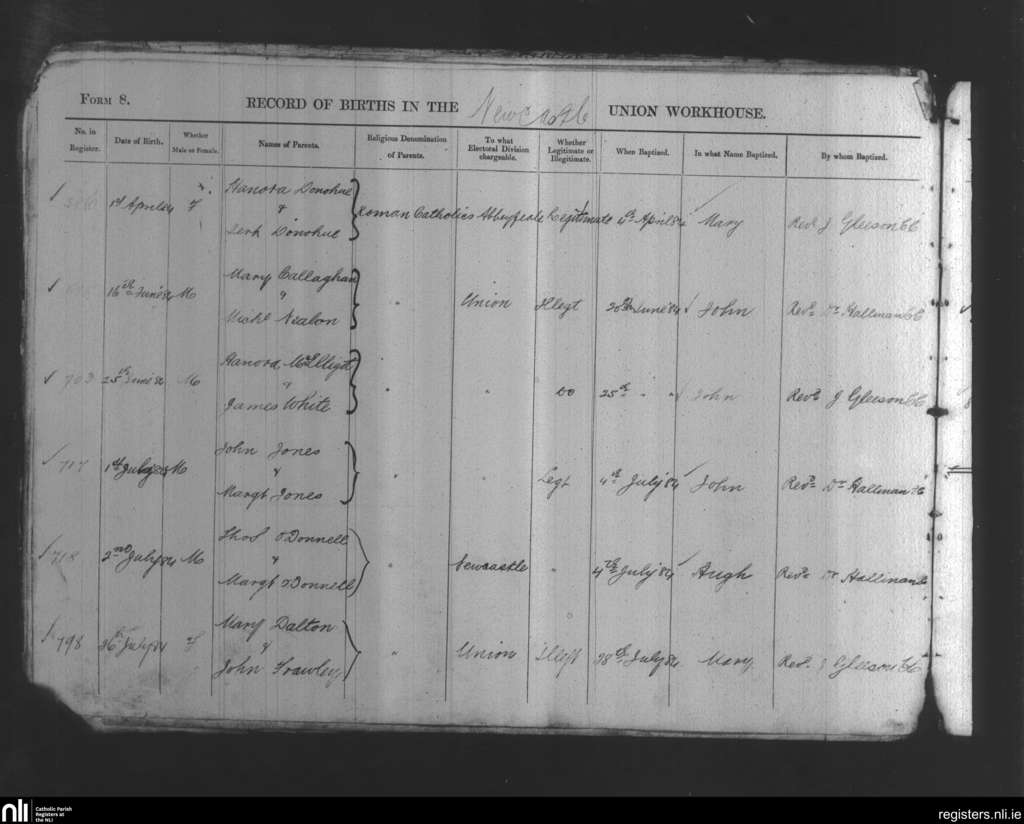 Form 8.
RECORD OF BIRTHS IN THE Newcastle UNION WORKHOUSE.
No. in Register. Date of Birth. Whether Male or Female. Names of Parents. Religious Denomination of Parents. To what Electoral Division chargeable. Whether Legitimate or Illegitimate. When Baptized. In what Name Baptized. By whom Baptized.
Hanora Donohue
1st April 84 F & Roman Catholics Abbeyfeale Legitimate 4th April 84 Mary Revd J Gleeson CC
Donohue
Mary Callaghan
16th June 84 M & " Union Illegt June 84 John Revd Dr Hallinan CC
Michl Nealon
Hanora McElligott
703 25th June 84 M & " " Do 25th " " John Revd J Gleeson CC
James White
John Jones
717 1st July 84 M & " " Legt 4th July 84 John Revd Dr Hallinan CC
Margt Jones
Thos O'Donnell
718 2nd July 84 M & Newcastle " 4th July 84 Hugh Revd Dr Hallinan
Margt O'Donnell
Mary Dalton
798 26th July 84 F & " Union Illegt 28th July 84 Mary Revd J Gleeson CC
John Frawley
nli Catholic Parish
Registers at
the NLI
registers.nli.ie